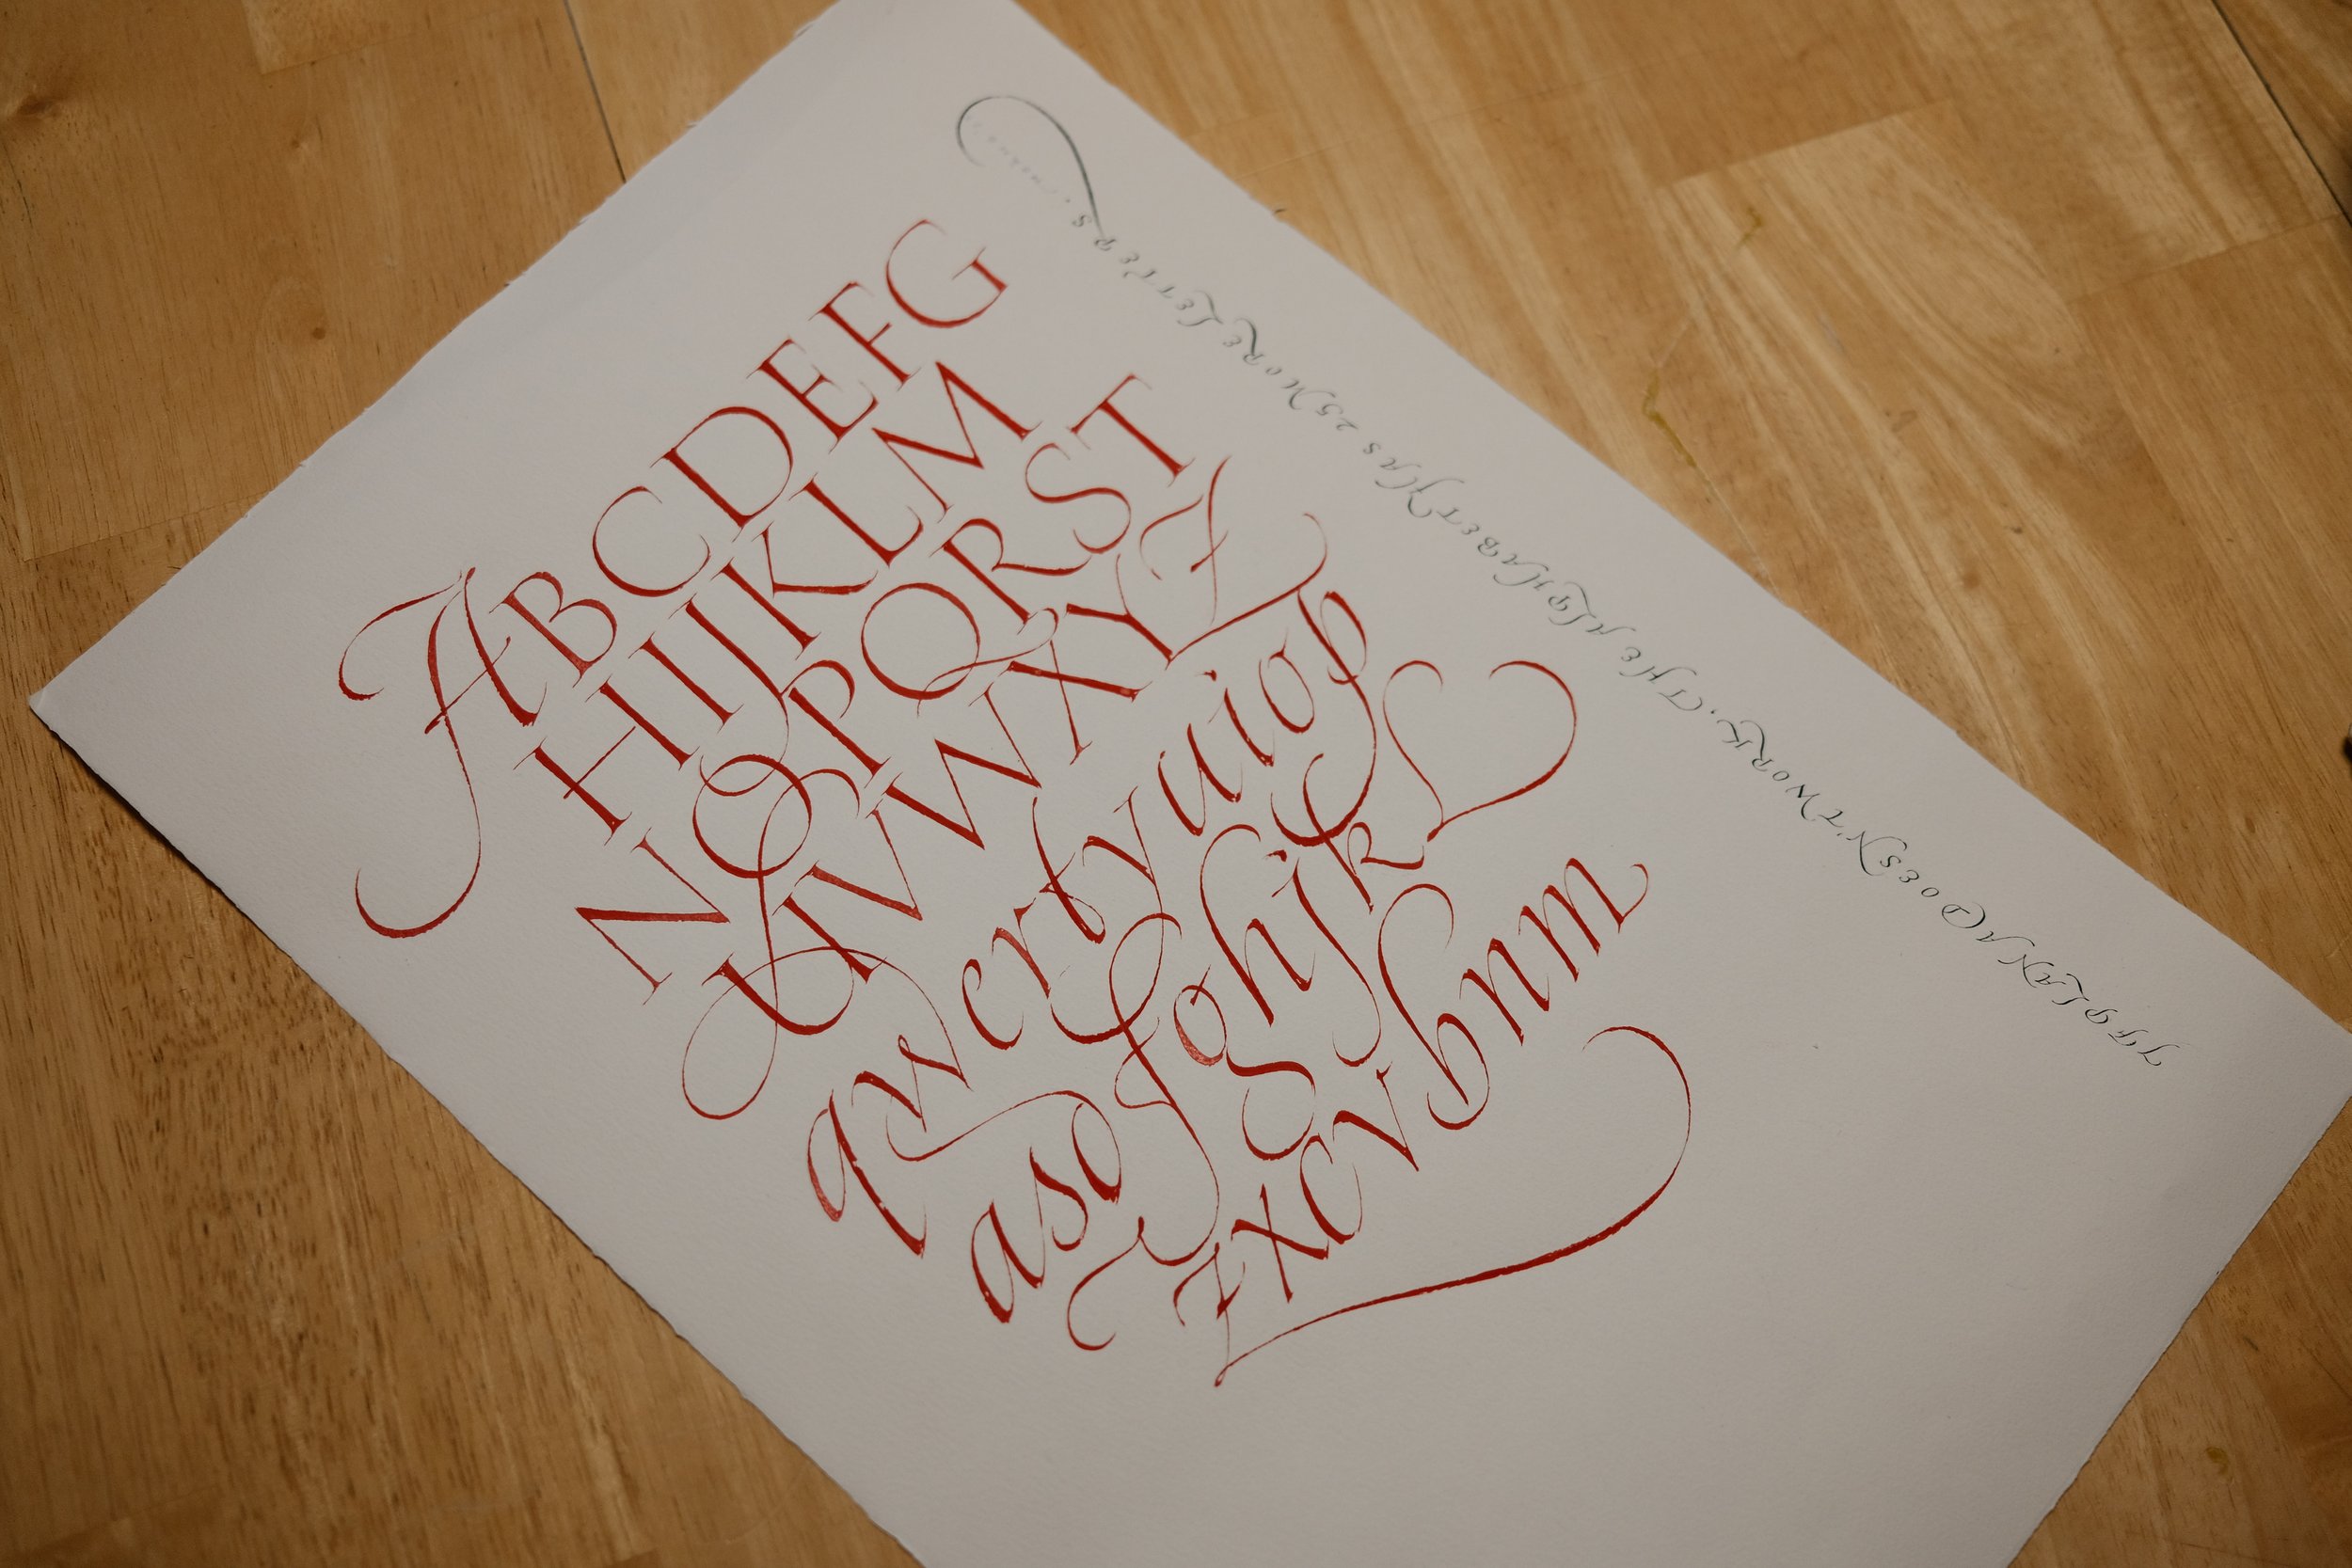 ABCDEFG
HIJKLM
NOPQRST
UVWXYZ
qwertyuiop
asdfghjkl
zxcvbnm
IF PLAN A DOESN'T WORK, THE ALPHABET HAS 25 MORE LETTERS.